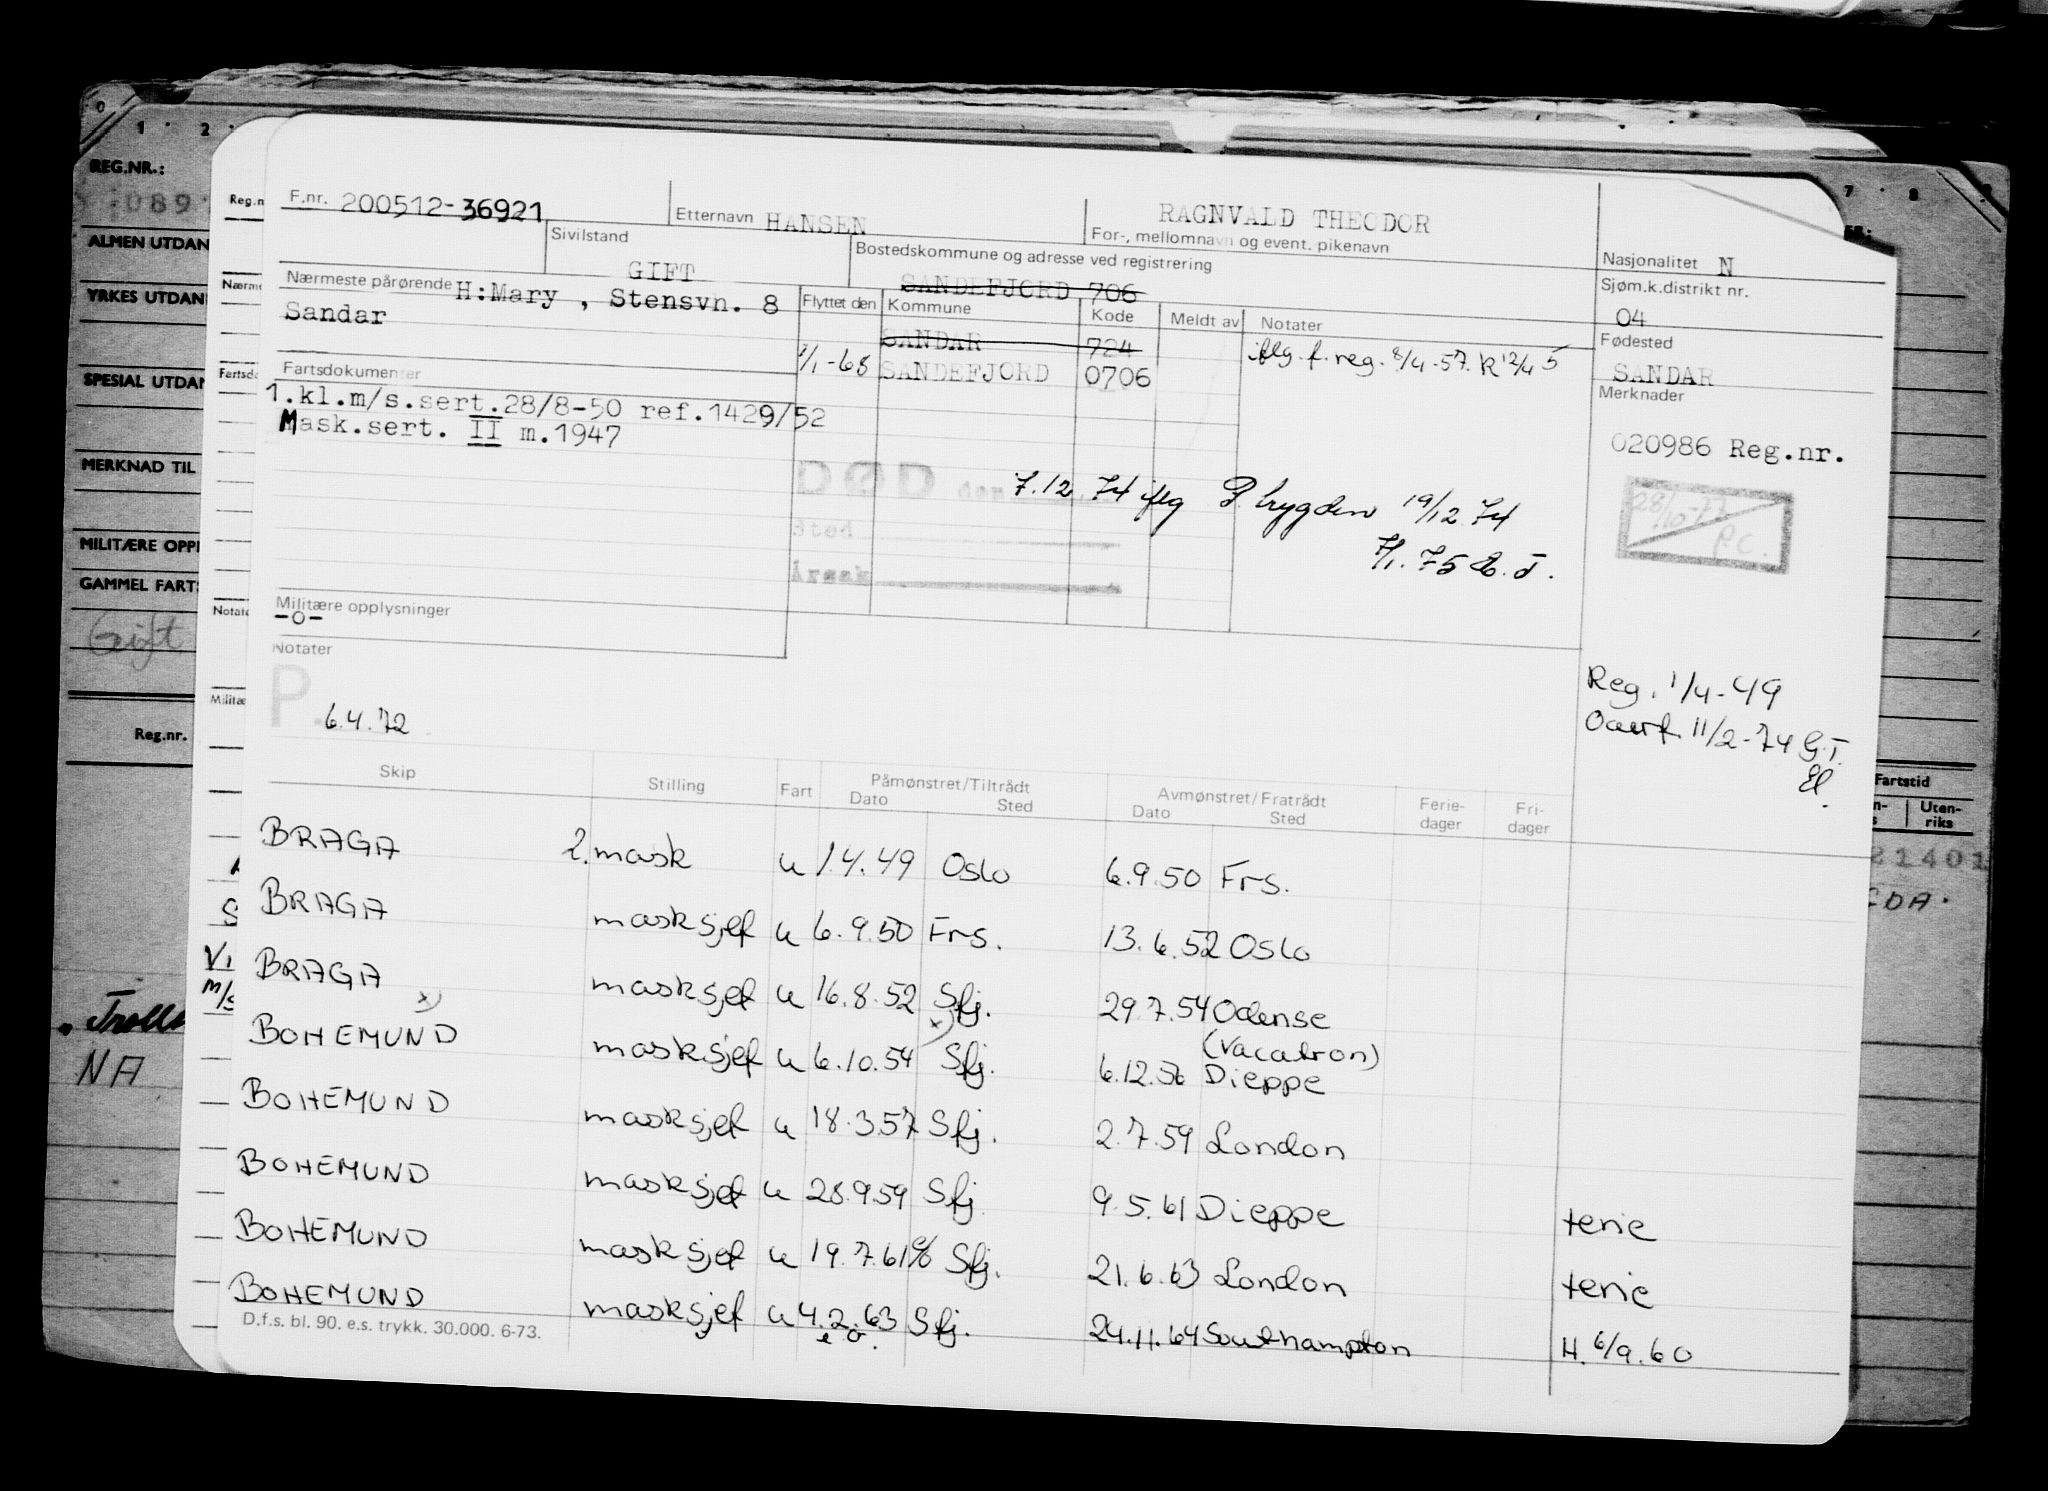 0 1 2 7 8
REG.NR.:
089
ALMEN UTDAN
YRKES UTDAN
SPESIAL UTDAN
MERKNAD TIL
MILITÆRE OPP
GAMMEL FART
Gift
Reg.nr.
"Troll
NA
Reg.n
Nærme
Fartsdo
Notate
Militæ
M/s
F.nr. 200512-36921 Etternavn HANSEN RAGNVALD THEODOR
For-, mellomnavn og event. pikenavn
Sivilstand GIFT
Bostedskommune og adresse ved registrering
SANDEFJORD 706
Nasjonalitet N
Sjøm.k.distrikt nr.
04
Fødested
SANDAR
Merknader
020986 Reg.nr.
28/10-77
P.C.
Nærmeste pårørende H:Mary , Stensvn. 8
Sandar
Flyttet den Kommune Kode Meldt av Notater
SANDAR 724
1/1-68 SANDEFJORD 0706
iflg. f. reg. 8/4-57. R 12/4 5
Fartsdokumenter
1.kl.m/s.sert.28/8-50 ref.1429/52
Mask.sert. II m.1947
DØD den 7.12 74 iflg P. trygden 19/12 74
Sted
7/1. 75
Årsak
Militære opplysninger
-o-
Notater
P. 6.4.72
Reg. 1/4-49
Overf. 11/2-74 G.T.
El.
Skip Stilling Fart Påmønstret/Tiltrådt Dato Sted Avmønstret/Fratrådt Dato Sted Ferie-dager Fri-dager
Fartstid
Uten-riks
21401
BRAGA 2. mask u 1.4.49 Oslo 6.9.50 Frs.
BRAGA masksjef u 6.9.50 Frs. 13.6.52 Oslo
BRAGA masksjef u 16.8.52 Sfj. 29.7.54 Odense
x) x) (Vacatron)
BOHEMUND masksjef u 6.10.54 Sfj. 6.12.56 Dieppe
BOHEMUND masksjef u 18.3.57 Sfj. 2.7.59 London
BOHEMUND masksjef u 28.9.59 Sfj. 9.5.61 Dieppe ferie
BOHEMUND masksjef u 19.7.61 % Sfj. 21.6.63 London ferie
BOHEMUND masksjef u 4.2.63 Sfj. 24.11.64 Southampton H. 6/9.60
D.f.s. bl. 90. e.s. trykk. 30.000. 6-73.